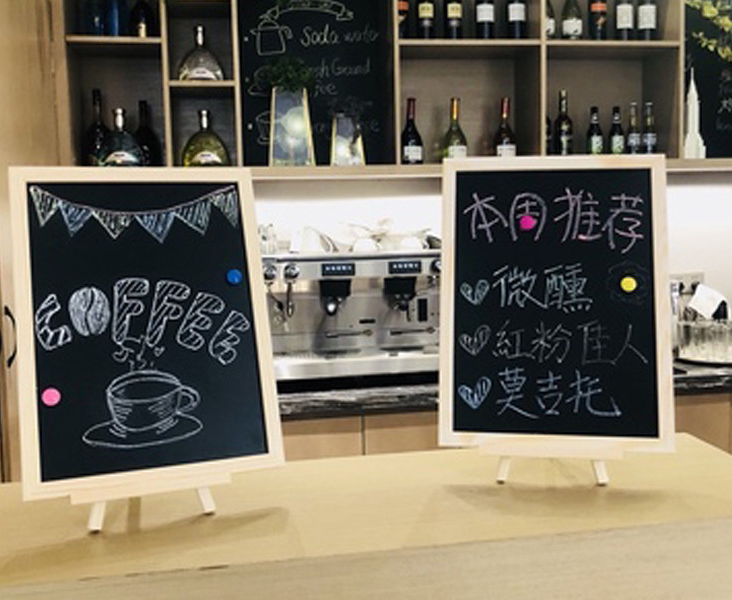 Soda water
Fresh Ground
COFFEE
本周推荐
微醺
紅粉佳人
莫吉托